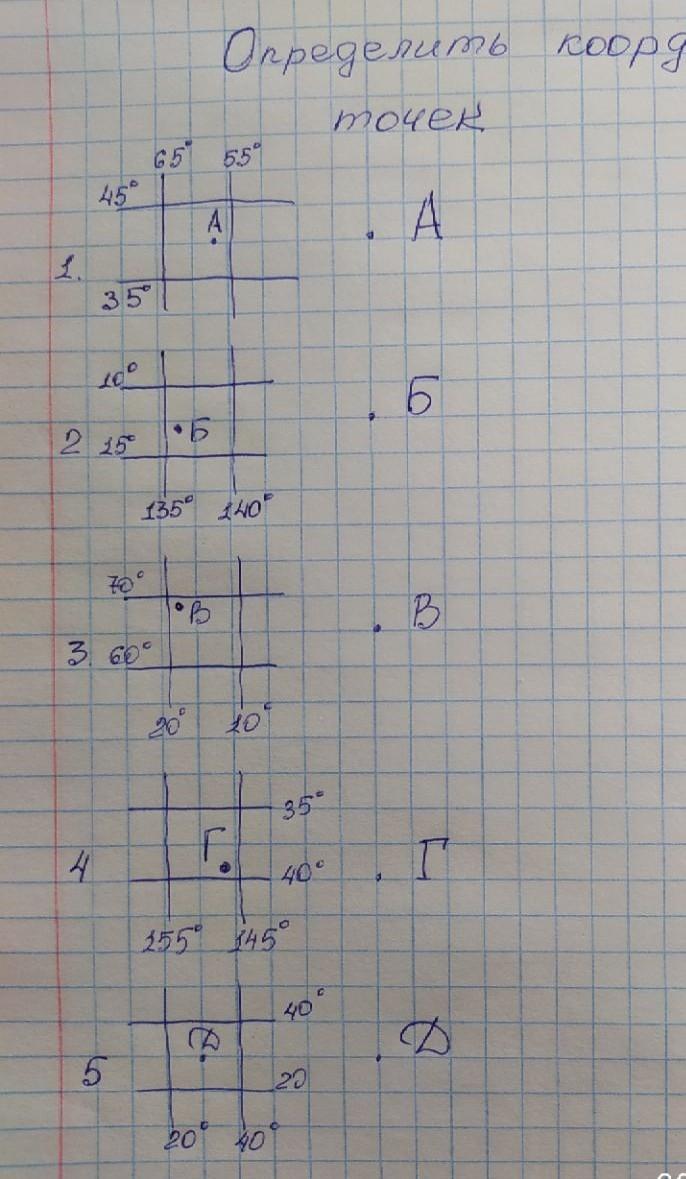 Определить коорд
точек
65° 55°
45°
А . А
1.
35°
10°
. Б
.Б
2 15°
135° 140°
70°
.В . В
3. 60°
20° 10°
35°
Г
4 40° . Г
155° 145°
40°
Д . Д
5 20
20° 40°